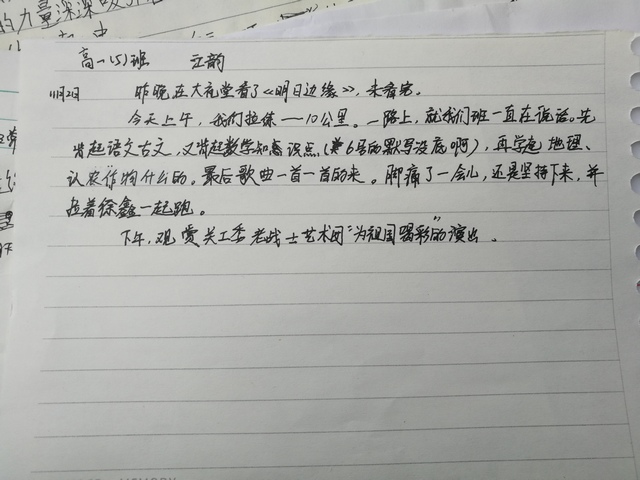 的力量深深吸引
高一(5)班 立韵
11月2日 昨晚在大礼堂看了《明日边缘》,未看完。
今天上午,我们拉练——10公里。一路上,就我们班一直在说话。先
背起语文古文,又背起数学知识点(6号的默写没底啊),再学起地理、
认农作物什么的。最后歌曲一首一首的来。脚痛了一会儿,还是坚持下来,并
拉着徐鑫一起跑。
下午,观赏关工委老战士艺术团"为祖国喝彩"的演出。